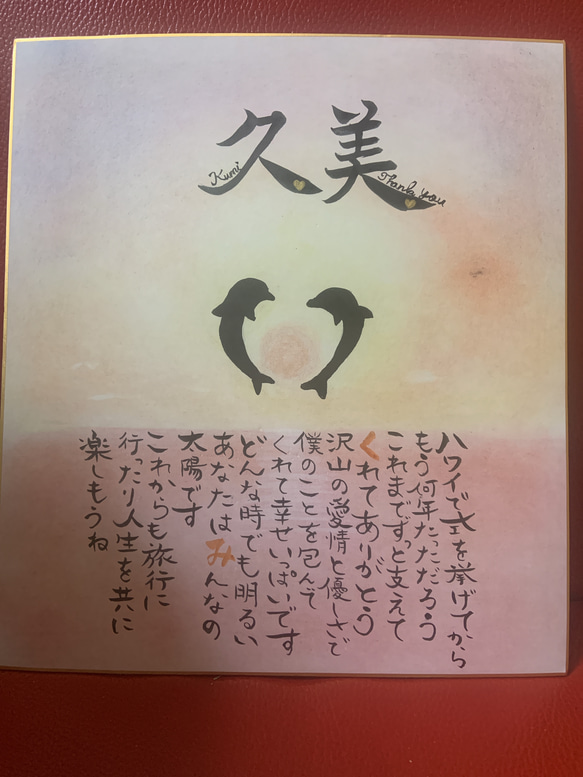 久美
Kumi
Thank you
ハワイで式を挙げてから
もう何年たっただろう
これまでずっと支えて
くれてありがとう
沢山の愛情と優しさで
僕のことを包んで
くれて幸せいっぱいです
どんな時でも明るい
あなたはみんなの
太陽です
これからも旅行に
行ったり人生を共に
楽しもうね